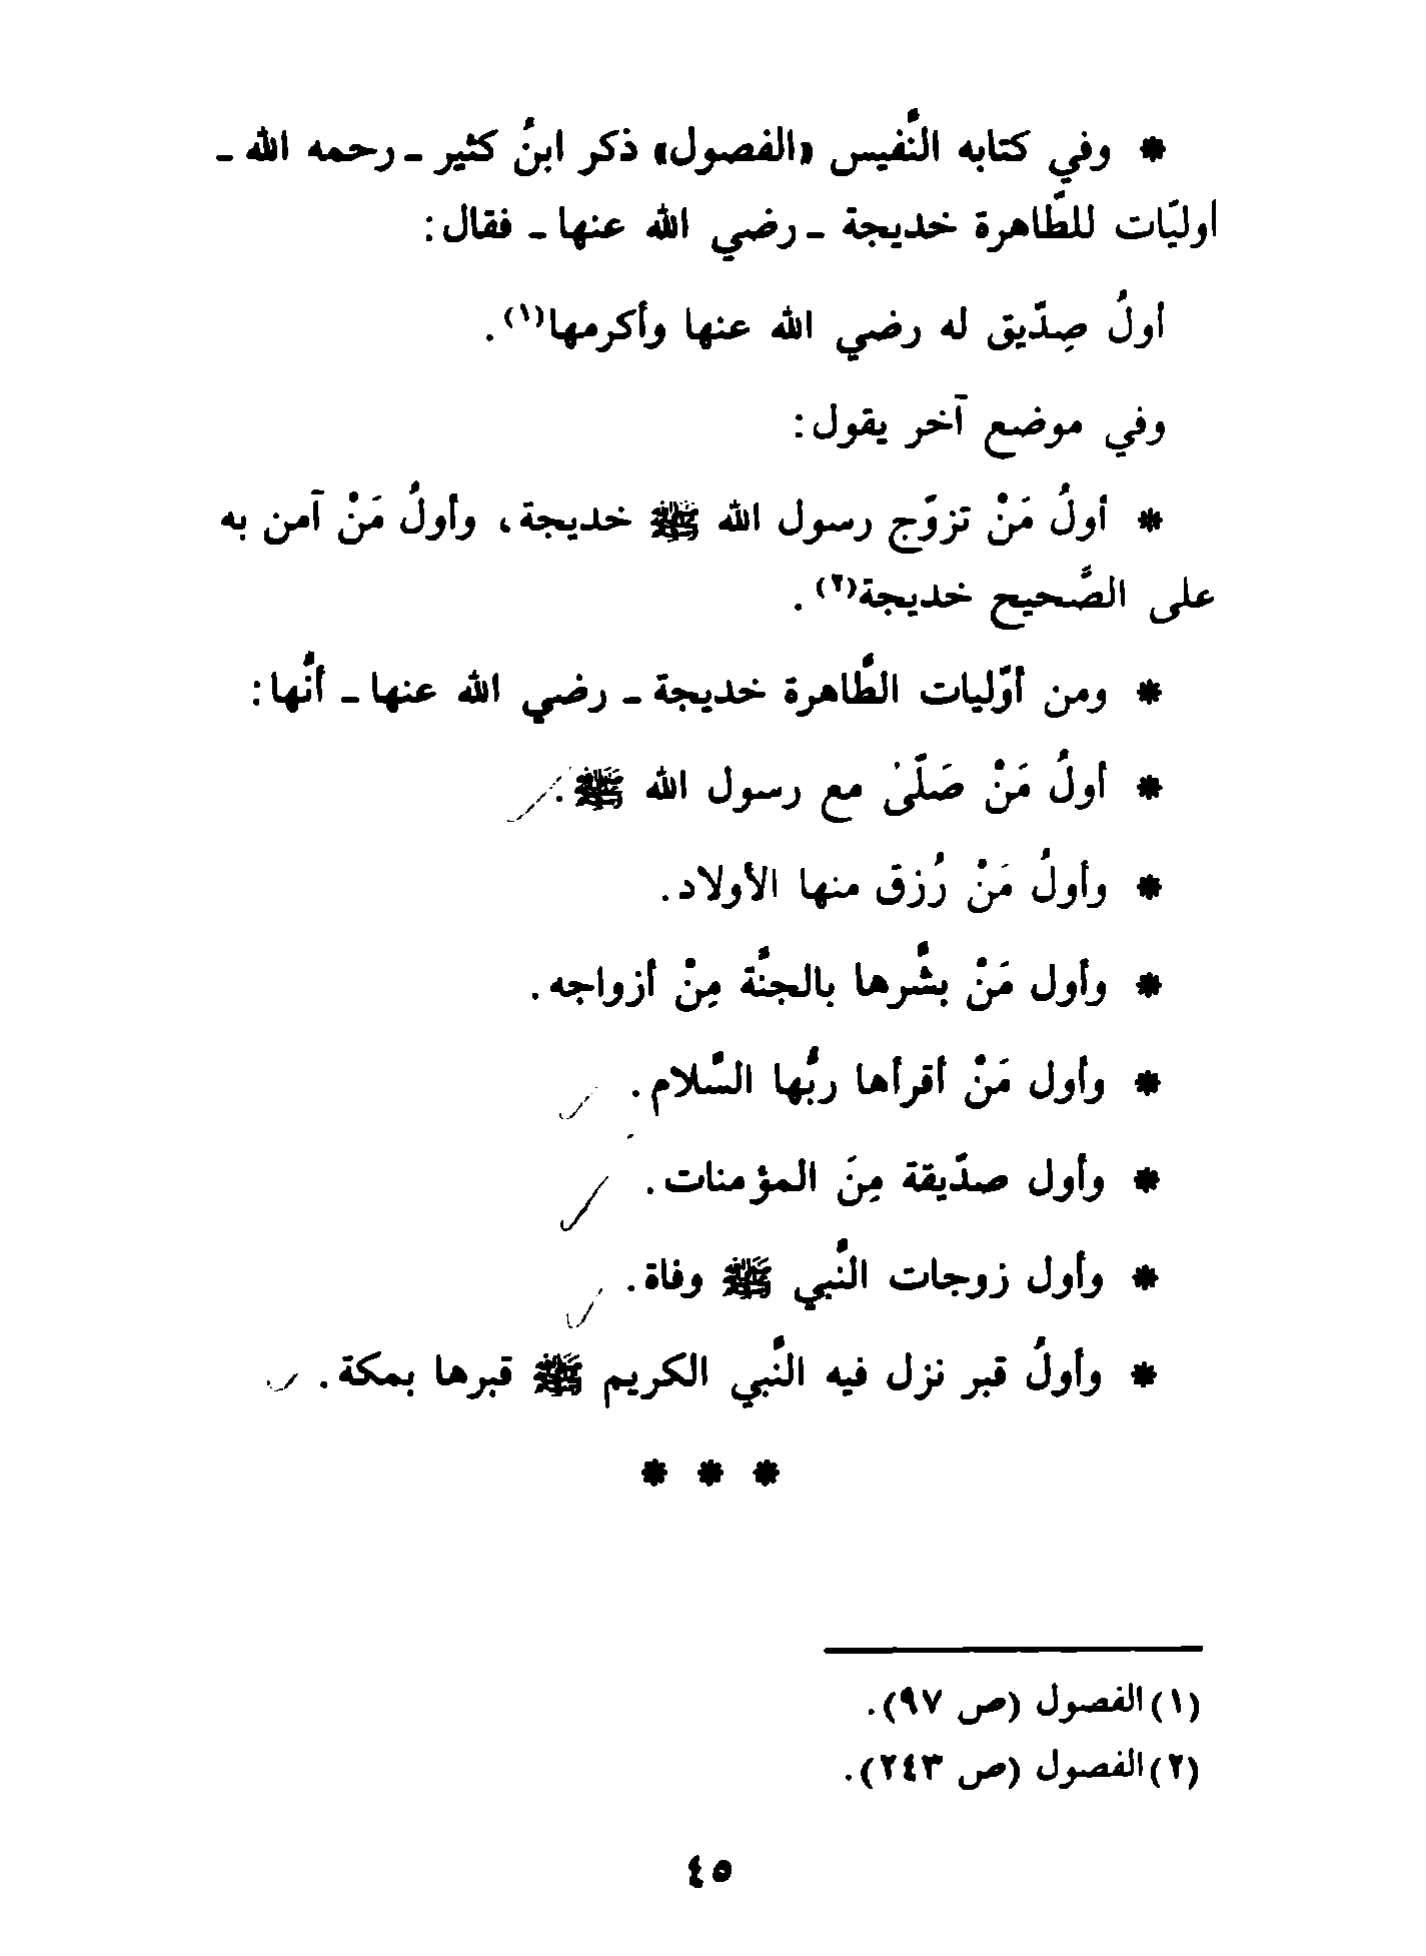 * وفي كتابه النَّفيس «الفصول» ذكر ابنُ كثير ـ رحمه الله ـ
أوليّات للطّاهرة خديجة ـ رضي الله عنها ـ فقال:
أولُ صِدّيق له رضي الله عنها وأكرمها(١).
وفي موضع آخر يقول:
* أولُ مَنْ تزوّج رسول الله ﷺ خديجة، وأولُ مَنْ آمن به
على الصَّحيح خديجة(٢).
* ومن أوّليات الطَّاهرة خديجة ـ رضي الله عنها ـ أنَّها:
* أولُ مَنْ صَلّىٰ مع رسول الله ﷺ.
* وأولُ مَنْ رُزق منها الأولاد.
* وأول مَنْ بشَّرها بالجنَّة مِنْ أزواجه.
* وأول مَنْ أقرأها ربُّها السَّلام.
* وأول صدّيقة مِنَ المؤمنات.
* وأول زوجات النَّبي ﷺ وفاة.
* وأولُ قبر نزل فيه النَّبي الكريم ﷺ قبرها بمكة.
* * *
(١) الفصول (ص ٩٧).
(٢) الفصول (ص ٢٤٣).
٤٥